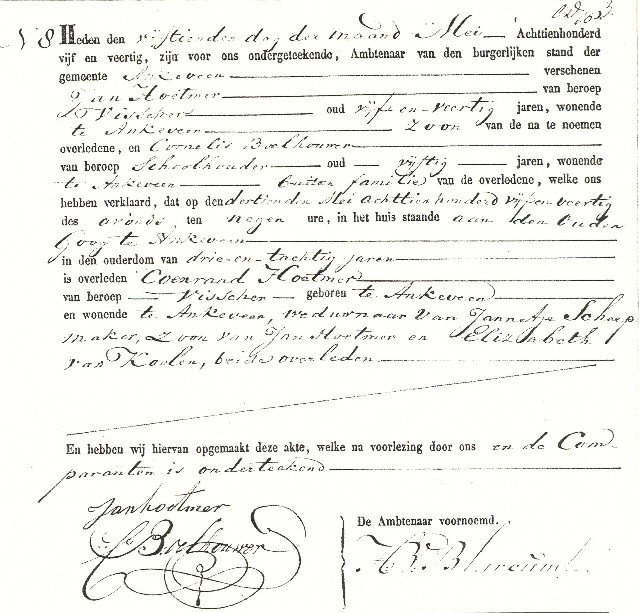 N 8 Heden den vijftienden dag der maand Mei Achttienhonderd
vijf en veertig, zijn voor ons ondergeteekende, Ambtenaar van den burgerlijken stand der
gemeente Ankeveen verschenen
Jan Hoetmer van beroep
Visscher oud vijf-en-veertig jaren, wonende
te Ankeveen Zoon van de na te noemen
overledene, en Cornelis Boelhouwer
van beroep Schoolhouder oud vijftig jaren, wonende
te Ankeveen buiten familie van de overledene, welke ons
hebben verklaard, dat op den dertienden Mei achttienhonderd vijf en veertig
des avonds ten negen ure, in het huis staande aan den Ouden
Goog te Ankeveen
in den ouderdom van drie-en-tachtig jaren
is overleden Coenraad Hoetmer
van beroep Visscher geboren te Ankeveen
en wonende te Ankeveen, weduwnaar van Jannetje Scheep
maker, Zoon van Jan Hoetmer en Elizabeth
van Koelen, beide overleden
En hebben wij hiervan opgemaakt deze akte, welke na voorlezing door ons en de Com-
paranten is onderteekend
Jan hoetmer
C Boelhouwer
De Ambtenaar voornoemd.